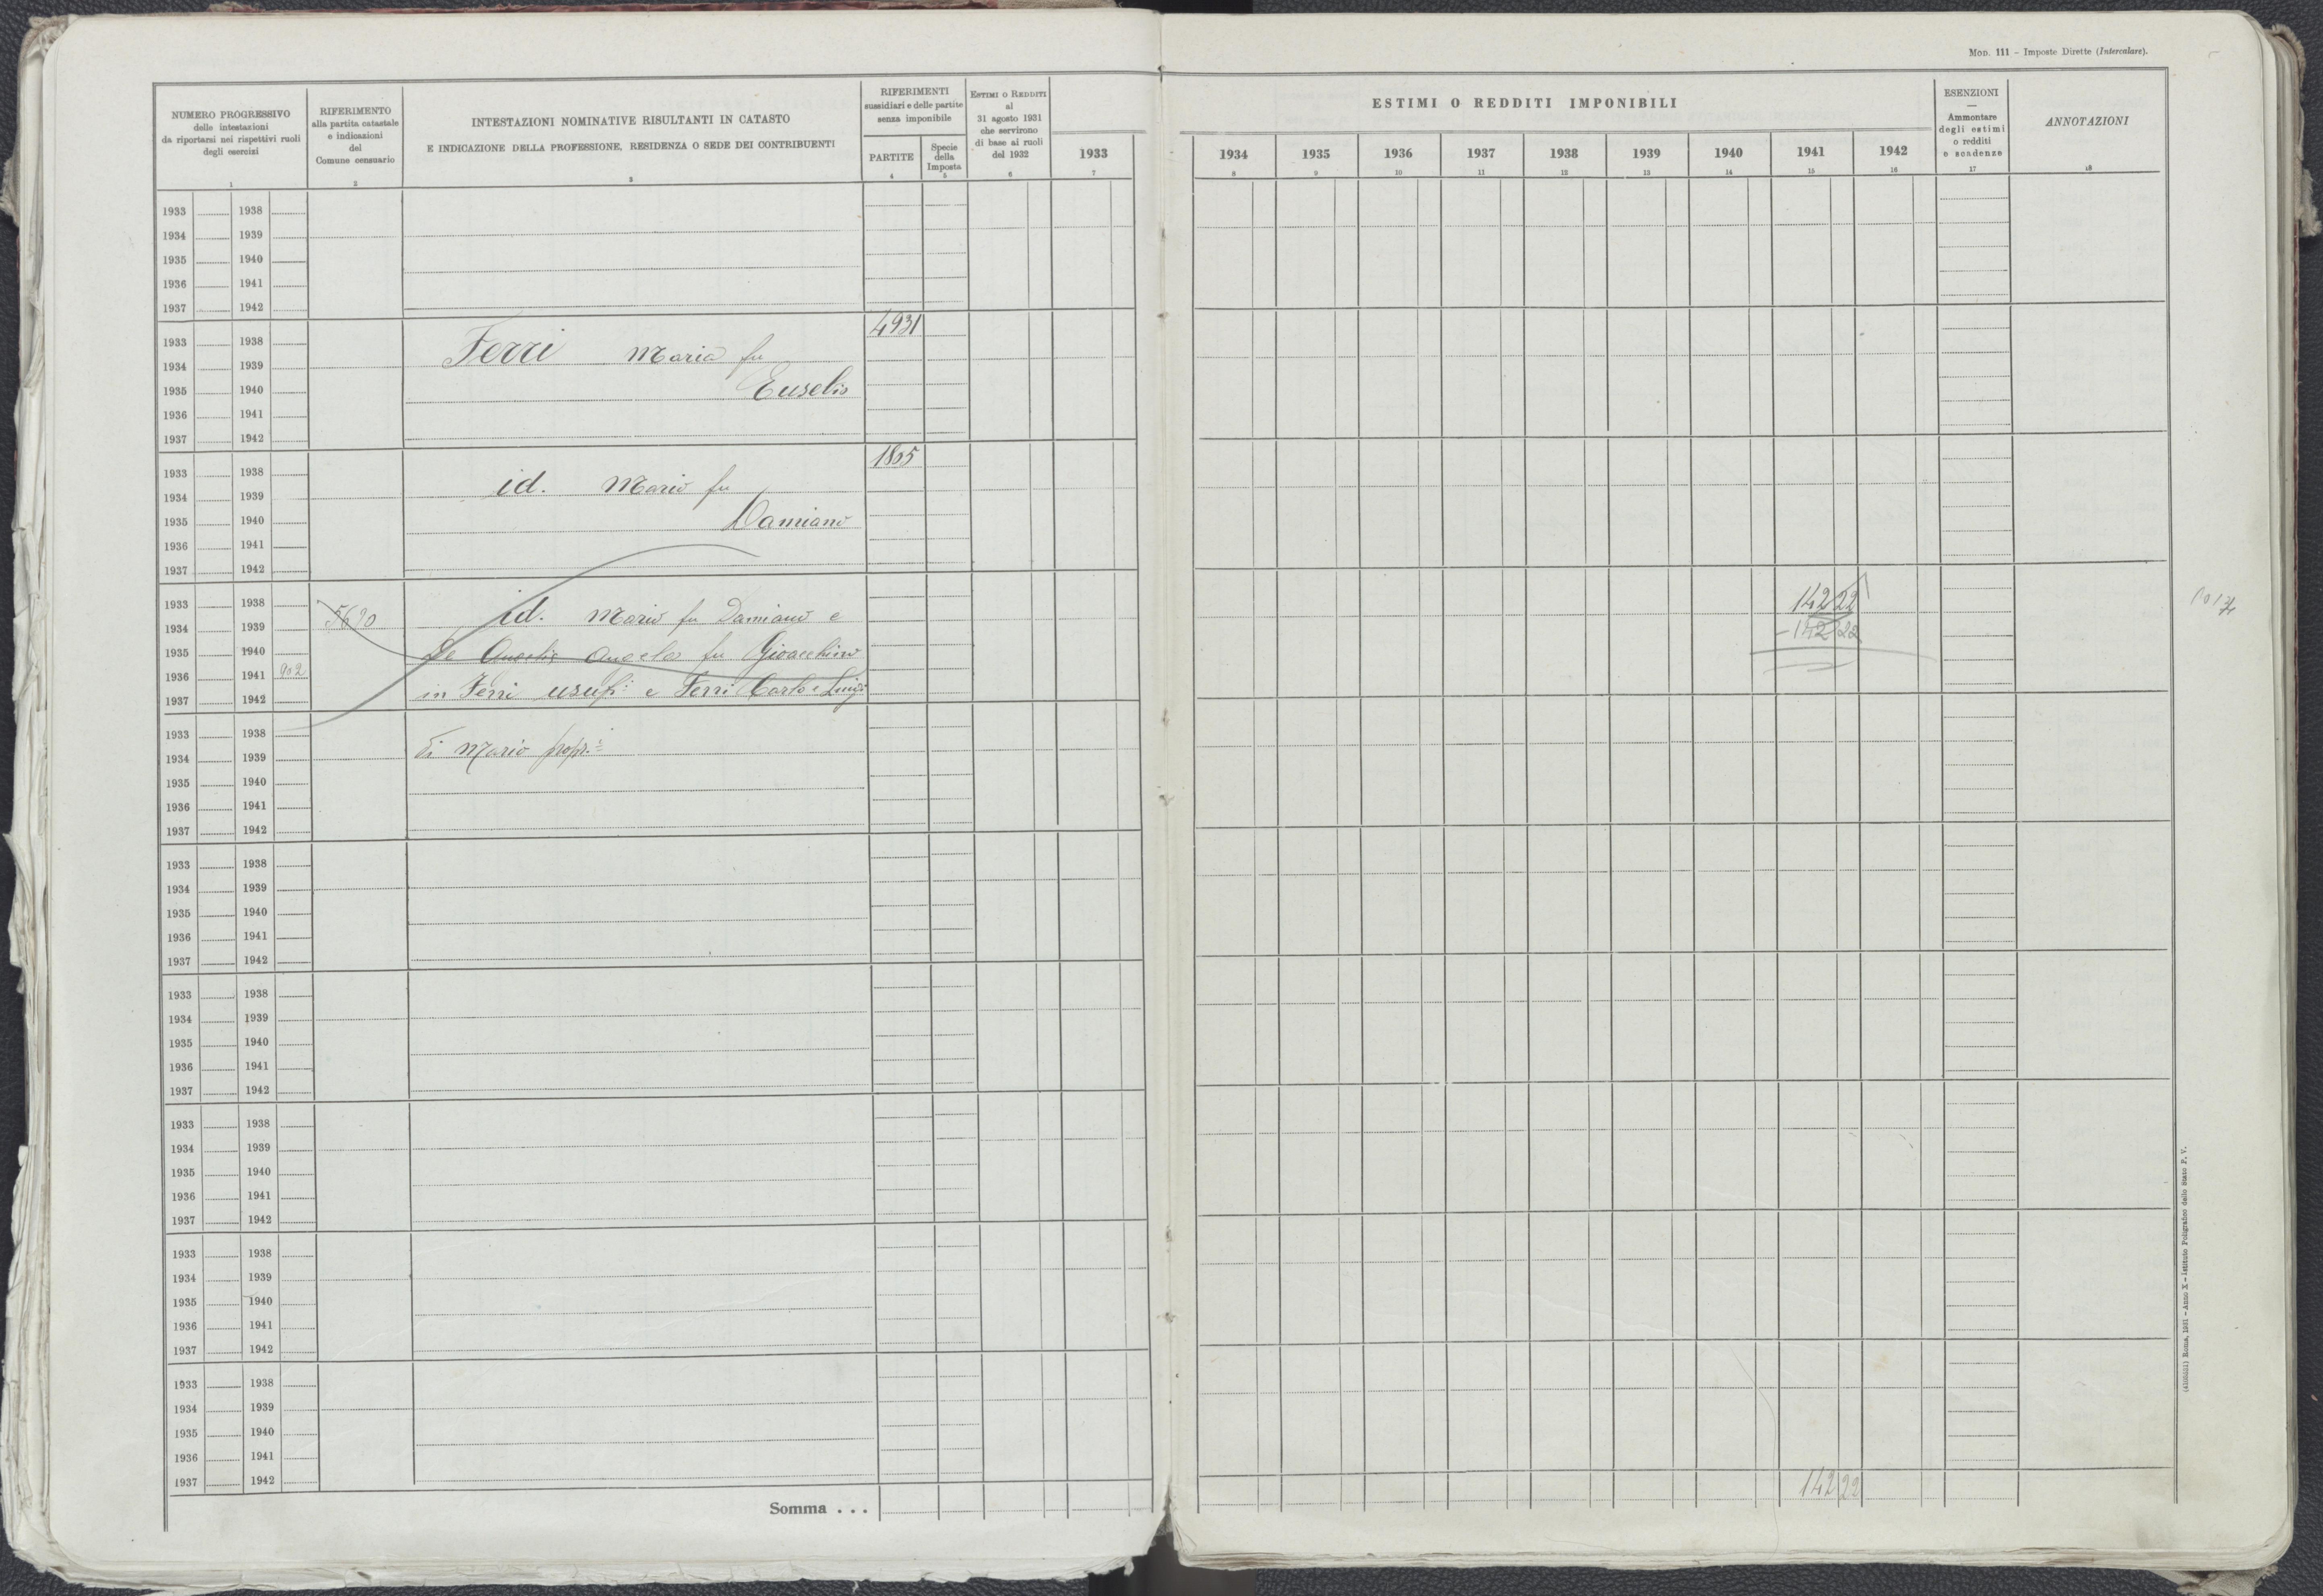 Mod. 111 - Imposte Dirette (Intercalare).
NUMERO PROGRESSIVO
delle intestazioni
da riportarsi nei rispettivi ruoli
degli esercizi
1
RIFERIMENTO
alla partita catastale
e indicazioni
del
Comune censuario
2
INTESTAZIONI NOMINATIVE RISULTANTI IN CATASTO
E INDICAZIONE DELLA PROFESSIONE, RESIDENZA O SEDE DEI CONTRIBUENTI
3
RIFERIMENTI
sussidiari e delle partite
senza imponibile
PARTITE
4
Specie
della
Imposta
5
Estimi o Redditi
al
31 agosto 1931
che servirono
di base ai ruoli
del 1932
6
1933
7
ESTIMI O REDDITI IMPONIBILI
1934 1935 1936 1937 1938 1939 1940 1941 1942
8 9 10 11 12 13 14 15 16
ESENZIONI
—
Ammontare
degli estimi
o redditi
e scadenze
17
ANNOTAZIONI
18
1933 1938
1934 1939
1935 1940
1936 1941
1937 1942
4931
1933 1938
Ferri Maria fu
1934 1939
Eusebio
1935 1940
1936 1941
1937 1942
1855
1933 1938
id. Mario fu
1934 1939
Damiano
1935 1940
1936 1941
1937 1942
1933 1938
5690 id. Mario fu Damiano e 142 22
1934 1939
- 142 22
1935 1940
De Angelis Angela fu Gioacchino
1936 1941 902
in Ferri usuf.i e Ferri Carlo e Luigi
1937 1942
1933 1938
di Mario propr.i
1934 1939
1935 1940
1936 1941
1937 1942
1933 1938
1934 1939
1935 1940
1936 1941
1937 1942
1933 1938
1934 1939
1935 1940
1936 1941
1937 1942
1933 1938
1934 1939
1935 1940
1936 1941
1937 1942
1933 1938
1934 1939
1935 1940
1936 1941
1937 1942
1933 1938
1934 1939
1935 1940
1936 1941
1937 1942
142 22
Somma . . .
Roma, 1931 - Anno X - Istituto Poligrafico dello Stato P. V.